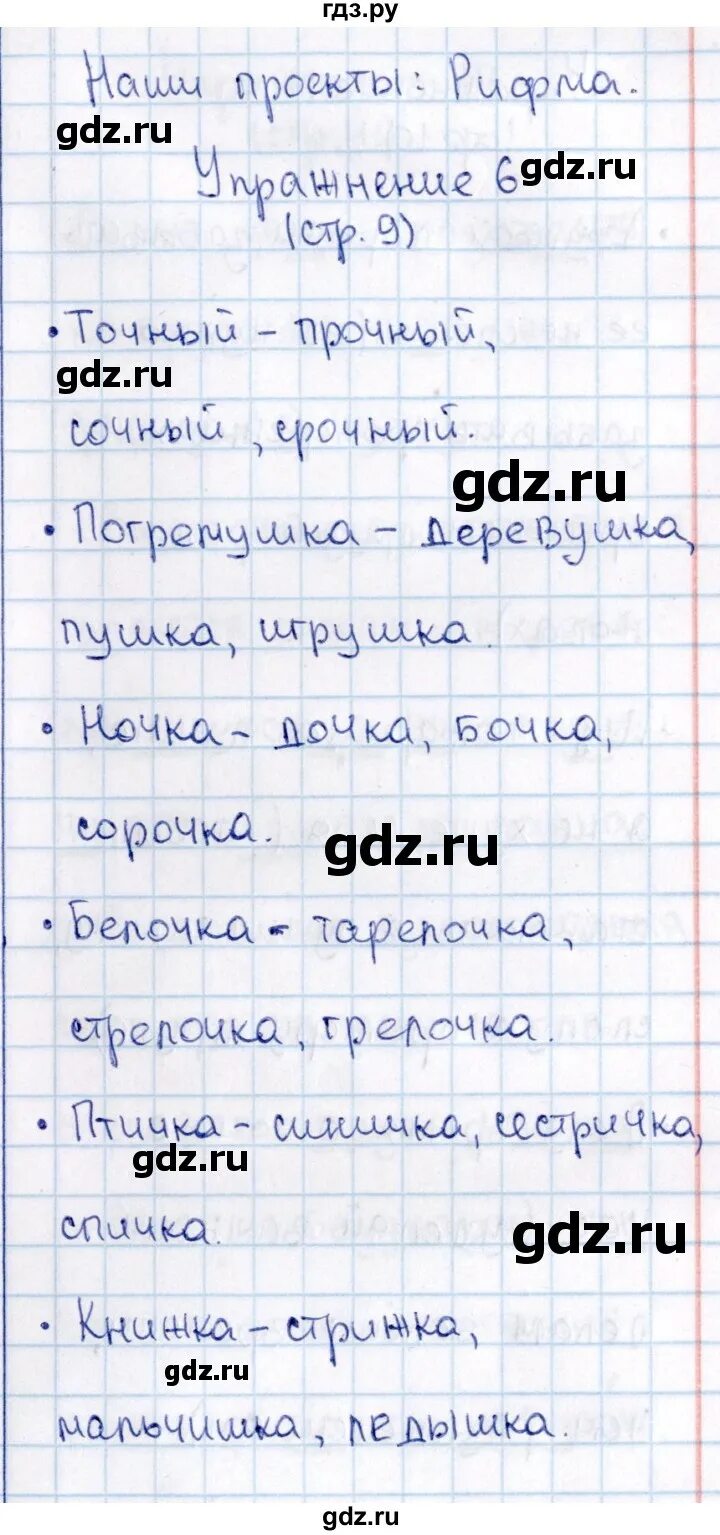 гдз.ру
Наши проекты: Рифма.
gdz.ru
Упражнение 6
gdz.ru
(стр. 9)
• Точный – прочный,
gdz.ru
сочный, срочный.
gdz.ru
• Погремушка – деревушка,
пушка, игрушка.
• Ночка – дочка, бочка,
сорочка.
gdz.ru
• Белочка – тарелочка,
стрелочка, грелочка.
• Птичка – синичка, сестричка,
gdz.ru
спичка.
gdz.ru
• Книжка – стрижка,
gdz.ru
мальчишка, ледышка.
gdz.ru